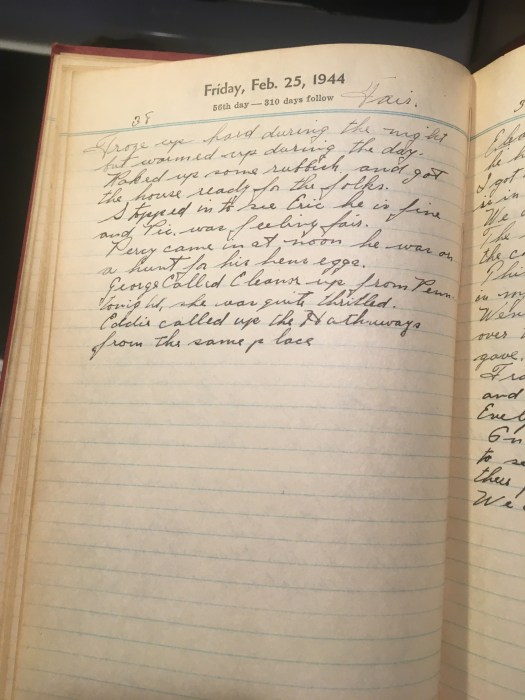 Friday, Feb. 25, 1944
56th day—310 days follow
Fair.
38
Froze up hard during the night
but warmed up during the day.
Raked up some rubbish, and got
the house ready for the folks.
Stopped in to see Eric he is fine
and Pic. was feeling fair.
Percy came in at noon he was on
a hunt for his hens eggs.
George Called Eleanor up from Penn.
tonight, she was quite thrilled.
Eddie called up the Hathaways
from the same place
he h
I got
is in
We
The
the c
Phi
in m
over
gave.
Fra
and
Eve
to se
We